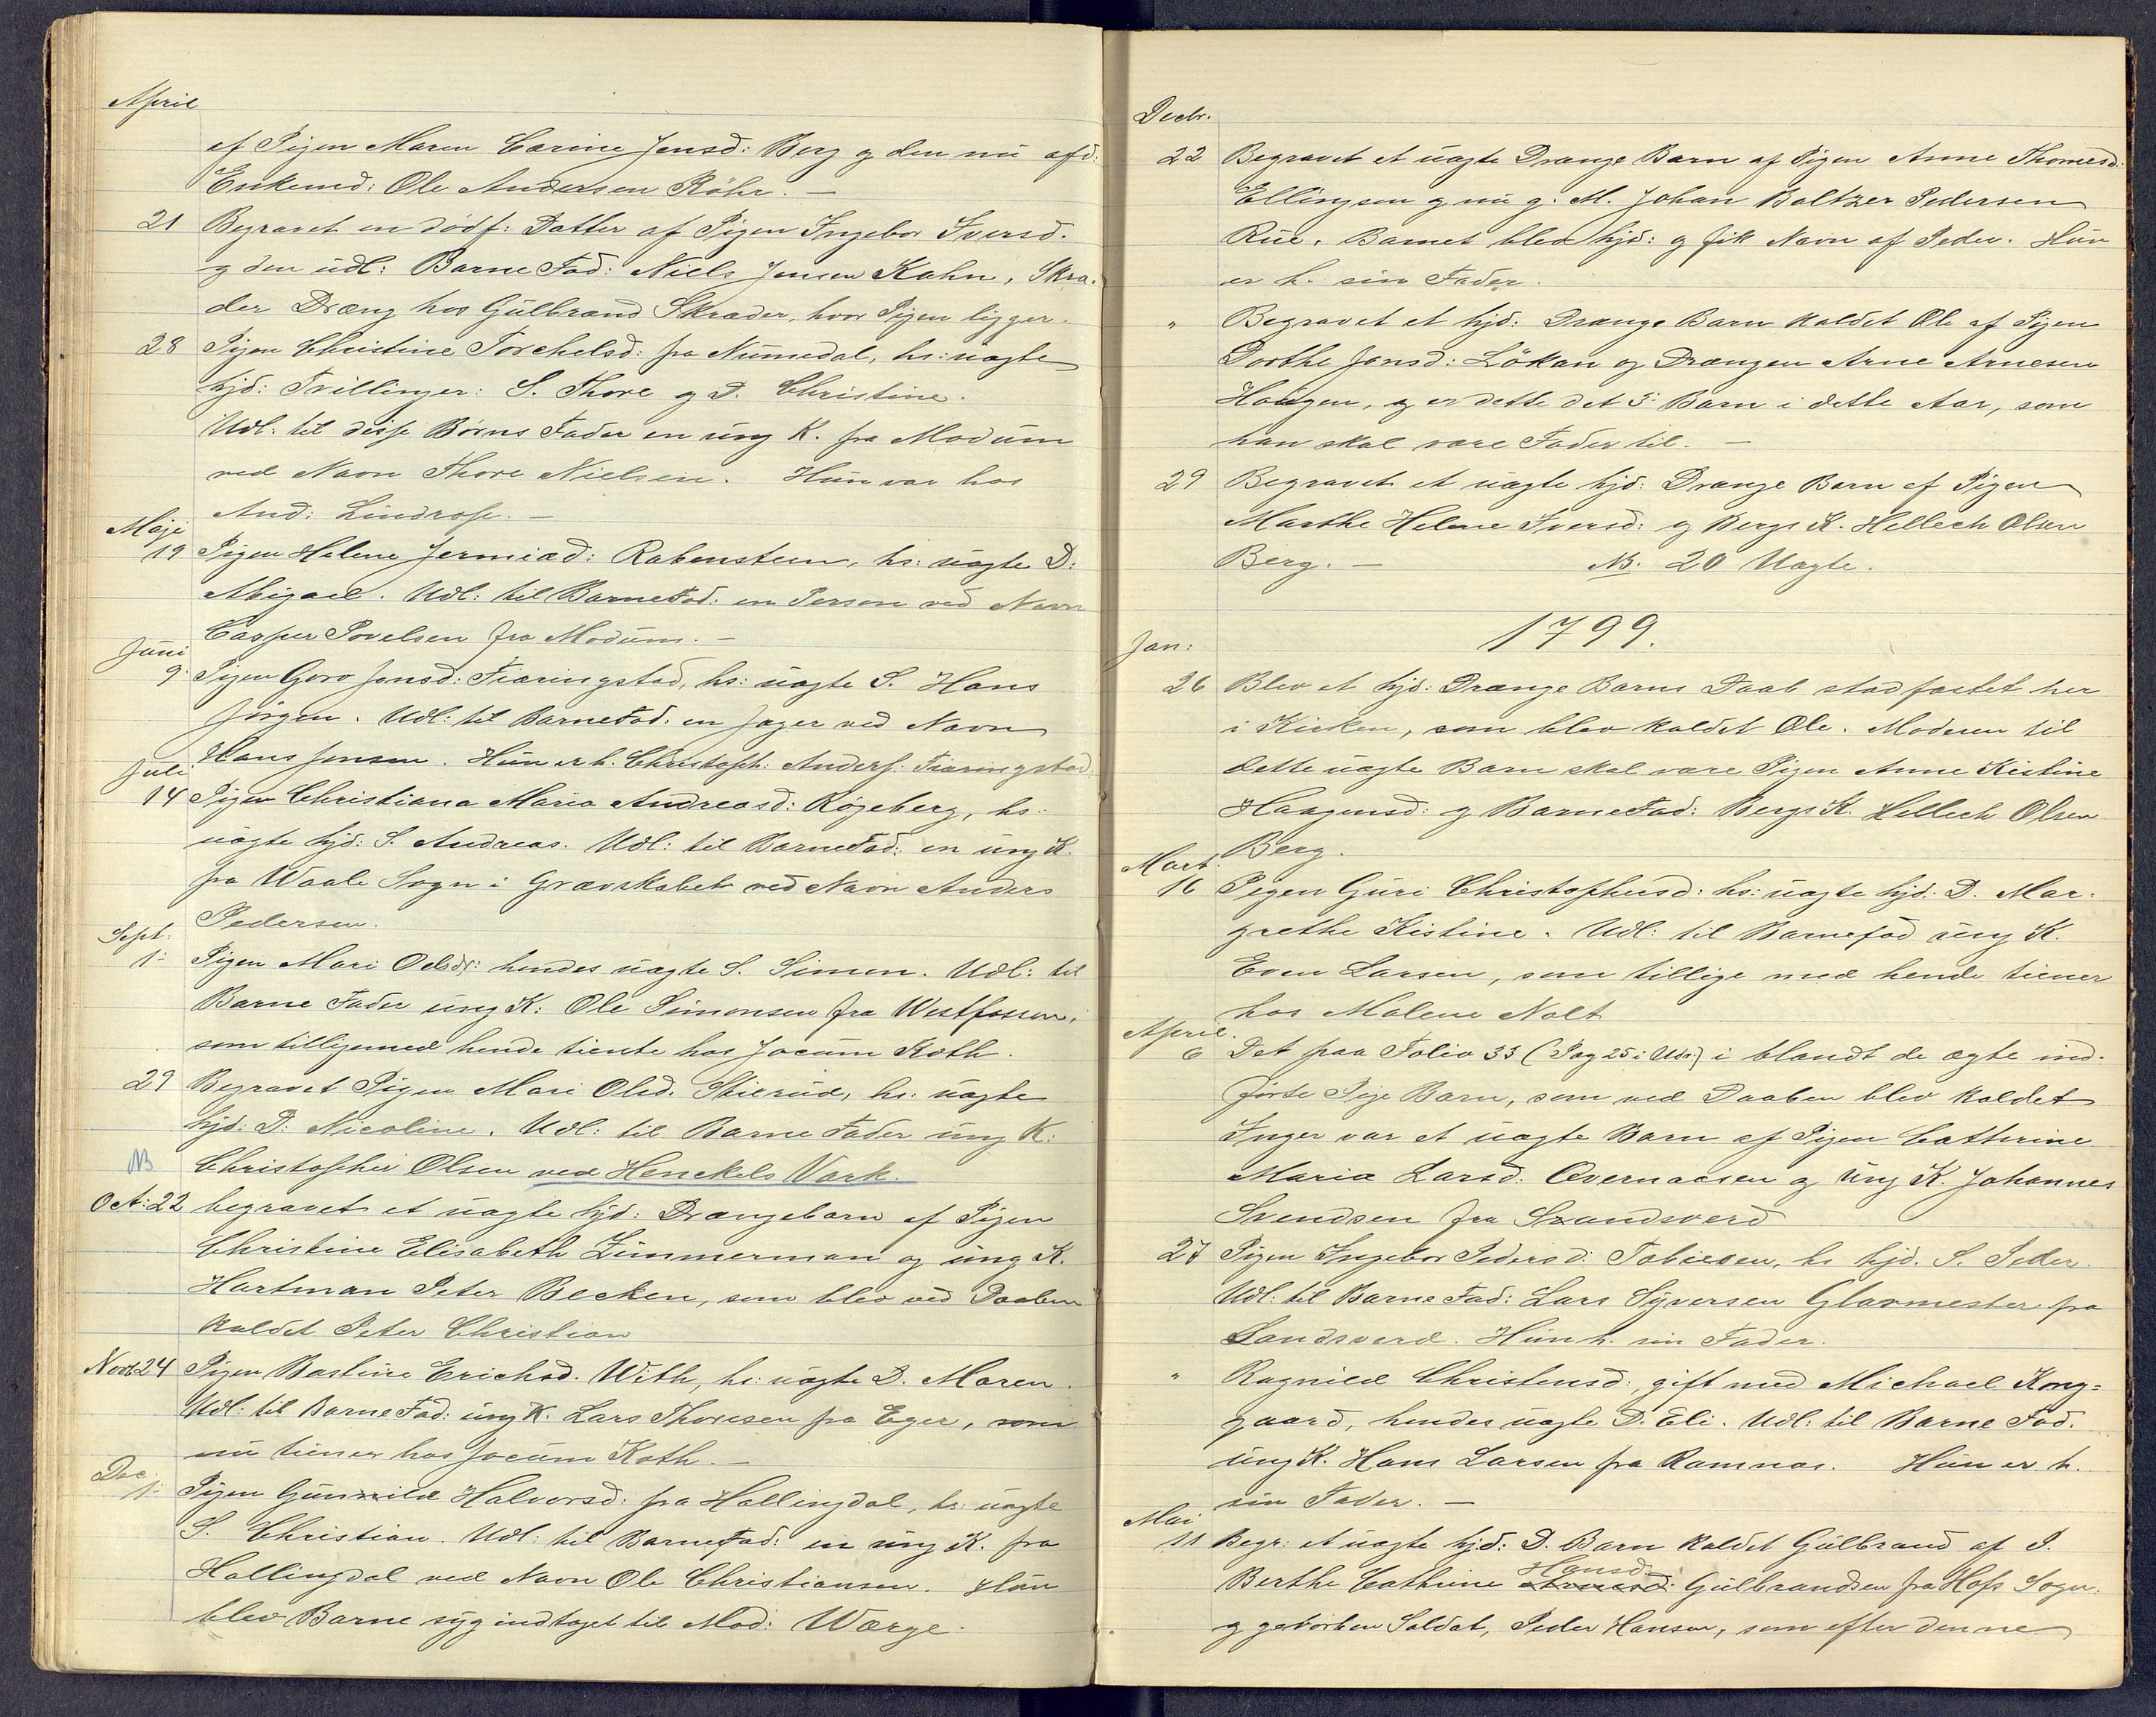 April
af Pigen Maren Carine Jensd: Berg og den nu afd:
Enkemd: Ole Andersen Röhr. —
21 Begravet en dødf: Datter af Pigen Ingebor Iversd.
og den udl: Barne Fad: Niels Jensen Kahn, Skra-
der Dræng hos Gülbrand Skræder, hvor Pigen ligger.
28 Pigen Christine Torchelsd: fra Nümedal, hs: üægte
hjd: Tvillinger: S. Thore og D. Christine.
Udl: til disse Børns Fader en üng K. fra Modüm
ved Navn Thore Nielsen. Hün var hos
And: Lindrose. —
Maji
19 Pigen Helene Jermiad: Rabenstein, hs: üægte D:
Abigael. Udl: til BarneFad: en Person ved Navn
Casper Povelsen fra Modüm. —
Juni
9. Pigen Goro Jensd: Tiaringstad, hs: üægte S. Hans
Jörgen. Udl: til BarneFad: en Jæger ved Navn
Hans Jensen. Hün er h. Christoph: Anders: Tiaringstad.
Juli
14 Pigen Christiana Maria Andreasd: Røgeberg, hs:
üægte hjd: S. Andreas. Udl: til BarneFad: en üng K.
fra Waale Sogn i Grævskabet ved Navn Anders
Pedersen.
Sept:
1: Pigen Mari Oelsdr: hendes üægte S. Simon. Udl: til
Barne Fader üng K: Ole Simonsen fra Westfossen,
som tilligemed hende tiente hos Jocüm Koth.
29 Begravet Pigen Mari Olsd. Skierüd, hs: üægte
hjd: D: Nicoline. Udl: til Barne Fader üng K:
NB Christopher Olsen ved Henckels Værk.
Oct: 22 begravet et üægte hjd: Drængebarn af Pigen
Christine Elisabeth Zimmerman og üng K.
Hartman Peter Becken, som blev ved Daaben
kaldet Peter Christian
Novb 24 Pigen Bastine Erichsd. With, hs: üægte D. Maren.
Udl: til BarneFad: üng K. Lars Thoresen fra Eger, som
nü tiener hos Jocüm Koth. —
Dec.
1. Pigen Günnild Halvorsd: fra Hallingdal, hs: üægte
S. Christian. Udl: til BarneFad: en üng K. fra
Hallingdal ved Navn Ole Christiansen. Hün
blev Barne syg indtaget til Mad: Wærge.
Decbr.
22 Begravet et üægte Drænge Barn af Pigen Anne Thomesd:
Ellingsen og nü g: M. Johan Baltzer Pedersen
Rüe. Barnet blev hjd: og fik Navn af Peder. Hün
er h. sin Fader.
" Begravet et hjd: Drænge Barn kaldet Ole af Pigen
Dorthe Jensd: Lökan og Drængen Arne Arnesen
Haügen, og er dette det 3: Barn i dette Aar, som
han skal være Fader til. —
29 Begravet et üægte hjd: Drænge Barn af Pigen
Marthe Helene Iversd: og Bergs K. Hellech Olsen
Berg. — NB. 20 Uægte.
1799.
Jan:
26 Blev et hjd: Drænge Barns Daab stadfæstet her
i Kirken, som blev kaldet Ole. Moderen til
dette üægte Barn skal være Pigen Anne Kistine
Haagensd: og BarneFad: Bergs K. Hellech Olsen
Berg.
Mart.
16 Pigen Güri Christophersd: hs: üægte hjd: D. Mar-
grethe Kistine. Udl: til Barnefad üng K.
Even Larsen, som tillige med hende tiener
hos Malene Nolt
April.
6 Det paa Folio 33 (Pag 25 i Udsr) i blandt de ægte ind-
førte Pige Barn, som ved Daaben blev kaldet
Inger var et üægte Barn af Pigen Cathrine
Maria Larsd. Overnaasen og üng K. Johannes
Svendsen fra Sandsværd
27 Pigen Ingebor Pedersd: Tobiesen, hs hjd. S. Peder.
Udl: til Barne Fad: Lars Syversen Glarmester fra
Sandsværd. Hün h. sin Fader.
" Ragnild Christensd:, gift med Michael Kong-
gaard, hendes üægte D. Eli. Udl: til Barne Fad.
üng K. Hans Larsen fra Ramnæs. Hün er h.
sin Fader. —
Mai
11 Begr: et üægte hjd: D. Barn kaldet Gülbrand af P.
Hansd
Berthe Cathrine Gülbrandsen fra Hofs Sogn.
og gevorben Soldat, Peder Hansen, som efter denne